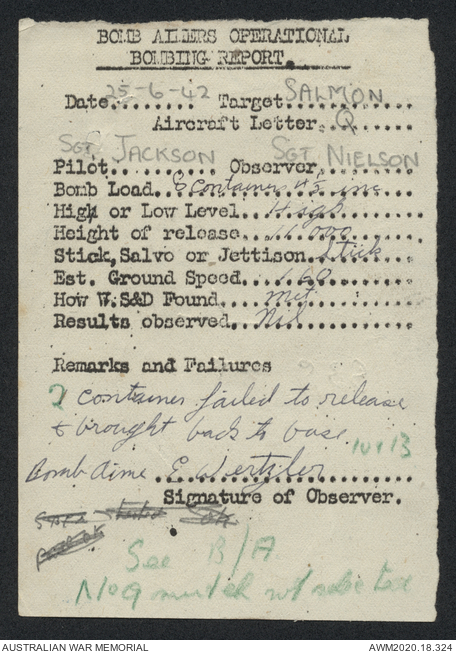 BOMB AIMERS OPERATIONAL
BOMBING REPORT.
Date 25-6-42 Target SALMON
Aircraft Letter Q
Pilot Sgt JACKSON Observer SGT NIELSON
Bomb Load 8 Container 4½ inc
High or Low Level High
Height of release 11,000
Stick, Salvo or Jettison Stick
Est. Ground Speed 160
How W.S&D Found Met
Results observed Nil
Remarks and Failures
2 container failed to release
& brought back to base
Bomb Aimer E Wertzler
Signature of Observer.
See B/A
No 9
AUSTRALIAN WAR MEMORIAL
AWM2020.18.324